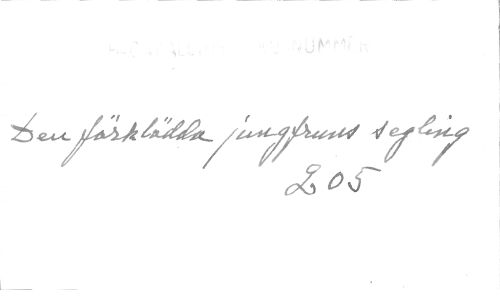 Den förklädda jungfruns segling
205